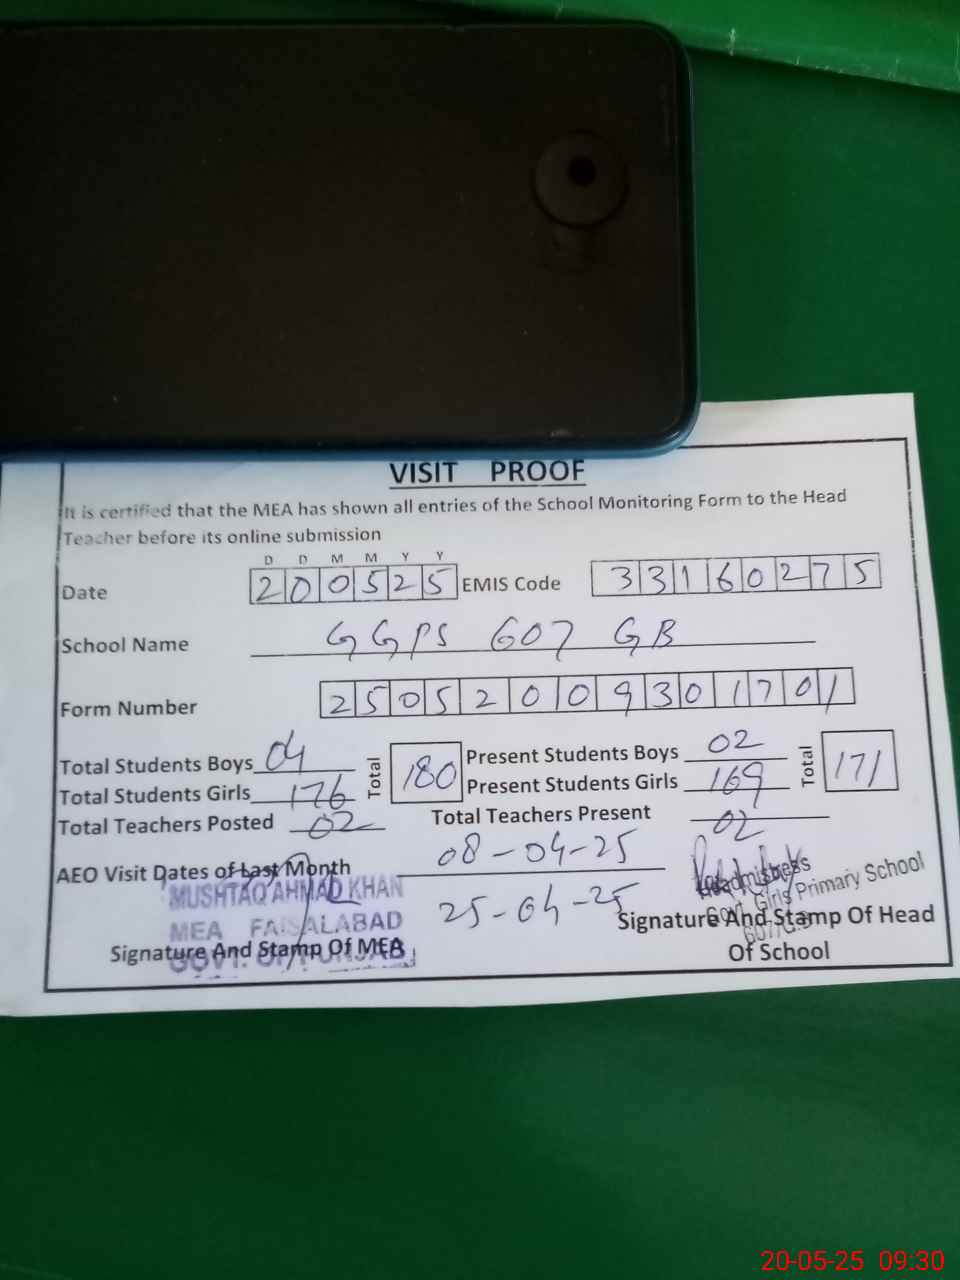 VISIT PROOF
It is certified that the MEA has shown all entries of the School Monitoring Form to the Head
Teacher before its online submission
D D M M Y Y
Date 200525 EMIS Code 33160275
School Name GGPS 607 GB
Form Number 25052009301701
Total Students Boys 04 Total 180 Present Students Boys 02 Total 171
Total Students Girls 176 Present Students Girls 169
Total Teachers Posted 02 Total Teachers Present 02
AEO Visit Dates of Last Month 08-04-25
25-04-25
MUSHTAQ AHMAD KHAN
MEA FAISALABAD
GOVT. OF PUNJAB
Signature And Stamp Of MEA
Headmistress
Govt. Girls Primary School
607/G.B
Signature And Stamp Of Head
Of School
20-05-25 09:30